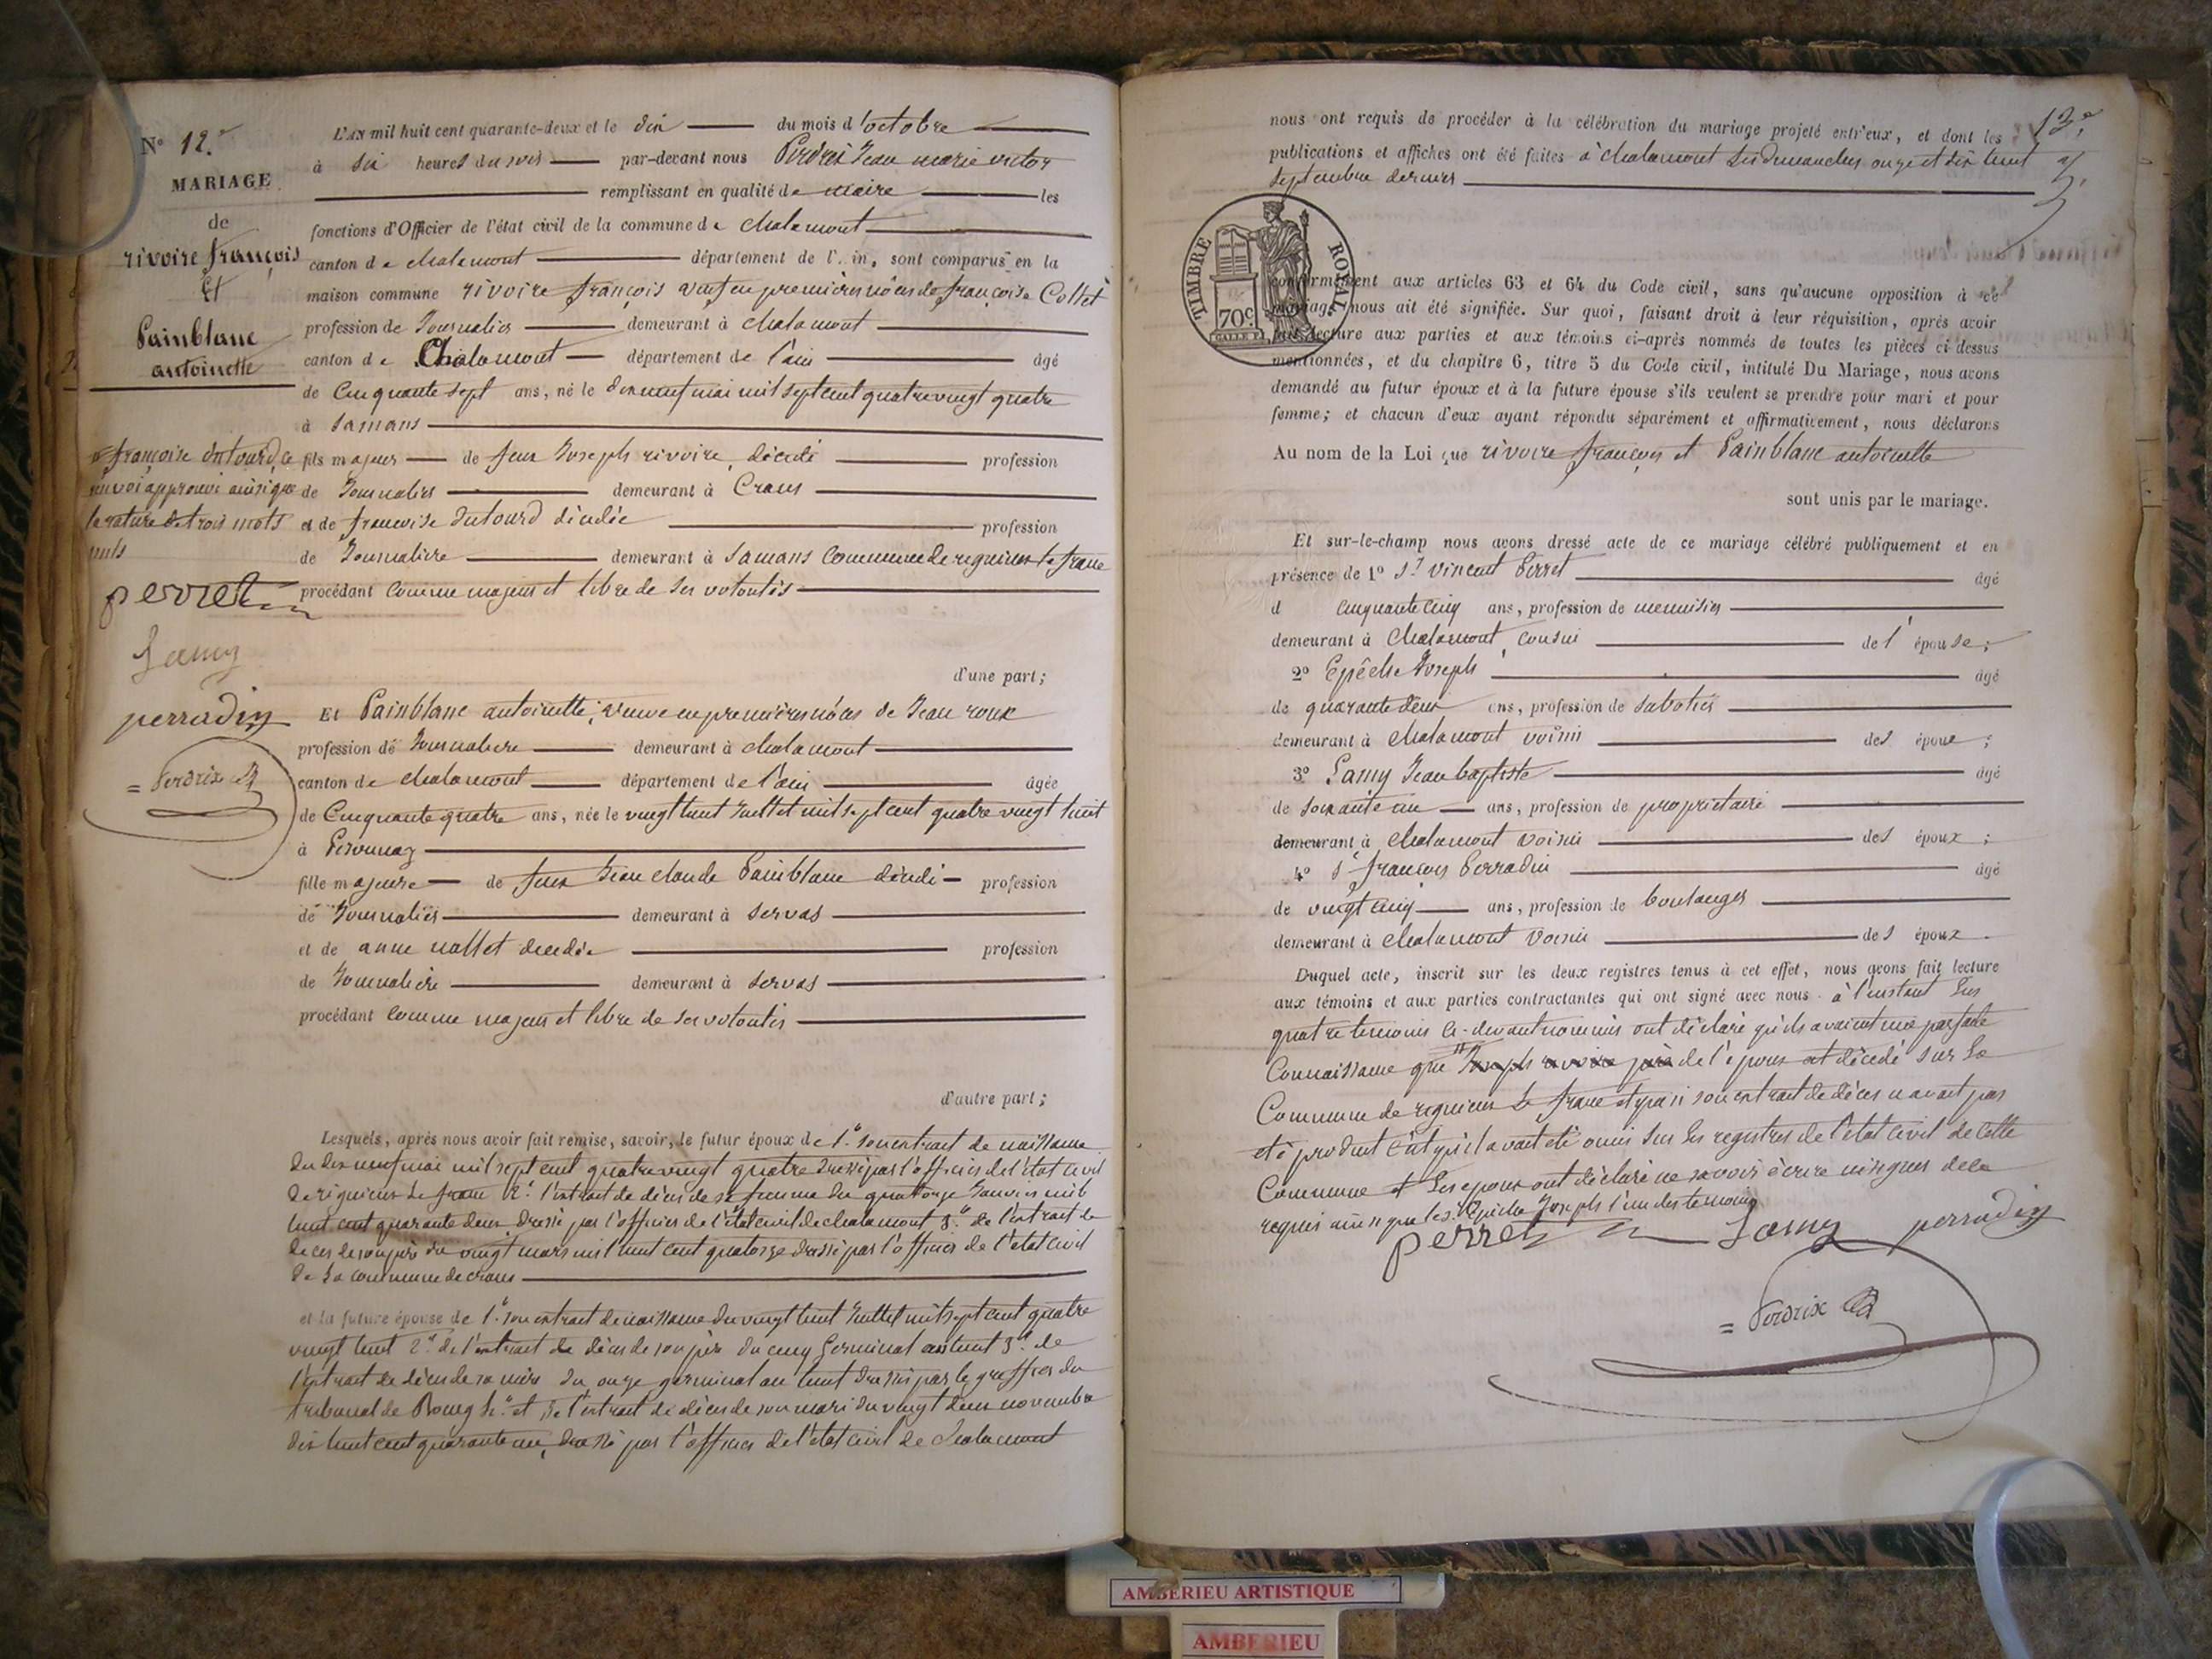 N° 12.e
MARIAGE
de
rivoire françois
Et
Painblanc
antoinette
françoise dutourd, ce
renvoi approuvé ainsi que
la rature de trois mots
nuls
perret
Lamy
perradin
= Perdrix
L'AN mil huit cent quarante-deux et le dix du mois d'octobre
à six heures du soir par-devant nous Perdrix Jean marie victor
remplissant en qualité de maire les
fonctions d'Officier de l'état civil de la commune de chalamont
canton de chalamont département de l'Ain, sont comparus en la
maison commune rivoire françois veuf en premières nôces de françoise Collet
profession de Journalier demeurant à chalamont
canton de Chalamont département de l'ain âgé
de Cinquante sept ans, né le dix neuf mai mil sept cent quatre vingt quatre
à Samans
fils majeur de feux Joseph rivoire, décédé profession
de Journalier demeurant à Crans
et de francoise dutourd décédée profession
de Journalière demeurant à Samans Commune de rignieux le franc
procédant comme majeur et libre de ses volontés
d'une part;
Et Painblanc antoinette, veuve en premières nôces de Jean roux
profession de Journalière demeurant à chalamont
canton de chalamont département de l'ain âgée
de Cinquante quatre ans, née le vingt huit Juillet mil sept cent quatre vingt huit
à Peronnaz
fille majeure de feux Jean claude Painblanc décédé profession
de Journalier demeurant à Servas
et de anne nallet décédée profession
de Journalière demeurant à Servas
procédant comme majeur et libre de ses volontés
d'autre part;
Lesquels, après nous avoir fait remise, savoir, le futur époux de 1.° son extrait de naissance
du dix neuf mai mil sept cent quatre vingt quatre dressé par l'officier de l'état civil
de rignieux le franc 2.° l'extrait de décès de sa femme du quatorze Janvier mil
huit cent quarante deux dressé par l'officier de l'état civil de chalamont 3.° de l'extrait de
décès de son père du vingt mars mil huit cent quatorze dressé par l'officier de l'état civil
de la commune de crans
et la future épouse de 1.° son extrait de naissance du vingt huit Juillet mil sept cent quatre
vingt huit 2.° de l'extrait de décès de son père du cinq Germinal an huit 3.° de
l'extrait de décès de sa mère du onze germinal an huit dressés par le greffier du
tribunal de Bourg 4.° et de l'extrait de décès de son mari du vingt deux novembre
dix huit cent quarante un, dressé par l'officier de l'état civil de chalamont
13.e
nous ont requis de procéder à la célébration du mariage projeté entr'eux, et dont les
publications et affiches ont été faites à chalamont les dimanches onze et dix huit
septembre dernier
TIMBRE ROYAL
70c
conformément aux articles 63 et 64 du Code civil, sans qu'aucune opposition à ce
mariage nous ait été signifiée. Sur quoi, faisant droit à leur réquisition, après avoir
fait lecture aux parties et aux témoins ci-après nommés de toutes les pièces ci-dessus
mentionnées, et du chapitre 6, titre 5 du Code civil, intitulé Du Mariage, nous avons
demandé au futur époux et à la future épouse s'ils veulent se prendre pour mari et pour
femme; et chacun d'eux ayant répondu séparément et affirmativement, nous déclarons
Au nom de la Loi que rivoire françois et Painblanc antoinette
sont unis par le mariage.
Et sur-le-champ nous avons dressé acte de ce mariage célébré publiquement et en
présence de 1° Sr vincent Perret âgé
d cinquante cinq ans, profession de menuisier
demeurant à chalamont, cousin de l'épouse;
2° Epêche Joseph âgé
de quarante deux ans, profession de sabotier
demeurant à chalamont voisin des époux;
3° Lamy Jean baptiste âgé
de soixante un ans, profession de propriétaire
demeurant à chalamont voisin des époux;
4° Sr françois Perradin âgé
de vingt cinq ans, profession de boulanger
demeurant à chalamont voisin des époux.
Duquel acte, inscrit sur les deux registres tenus à cet effet, nous avons fait lecture
aux témoins et aux parties contractantes qui ont signé avec nous. à l'instant les
quatre temoins ci-devant nommés ont déclaré qu'ils avaient une parfaite
Connaissance que Joseph rivoire père de l'époux est décédé sur la
Commune de rignieux le franc et que si son extrait de décès n'avait pas
été produit c'est qu'il avait été omis sur les registres de l'état civil de cette
Commune et les époux ont déclaré ne savoir écrire ni signer de ce
requis ainsi que les. Epêche Joseph l'un des temoins
perret Lamy perradin
= Perdrix
AMBERIEU ARTISTIQUE
AMBERIEU